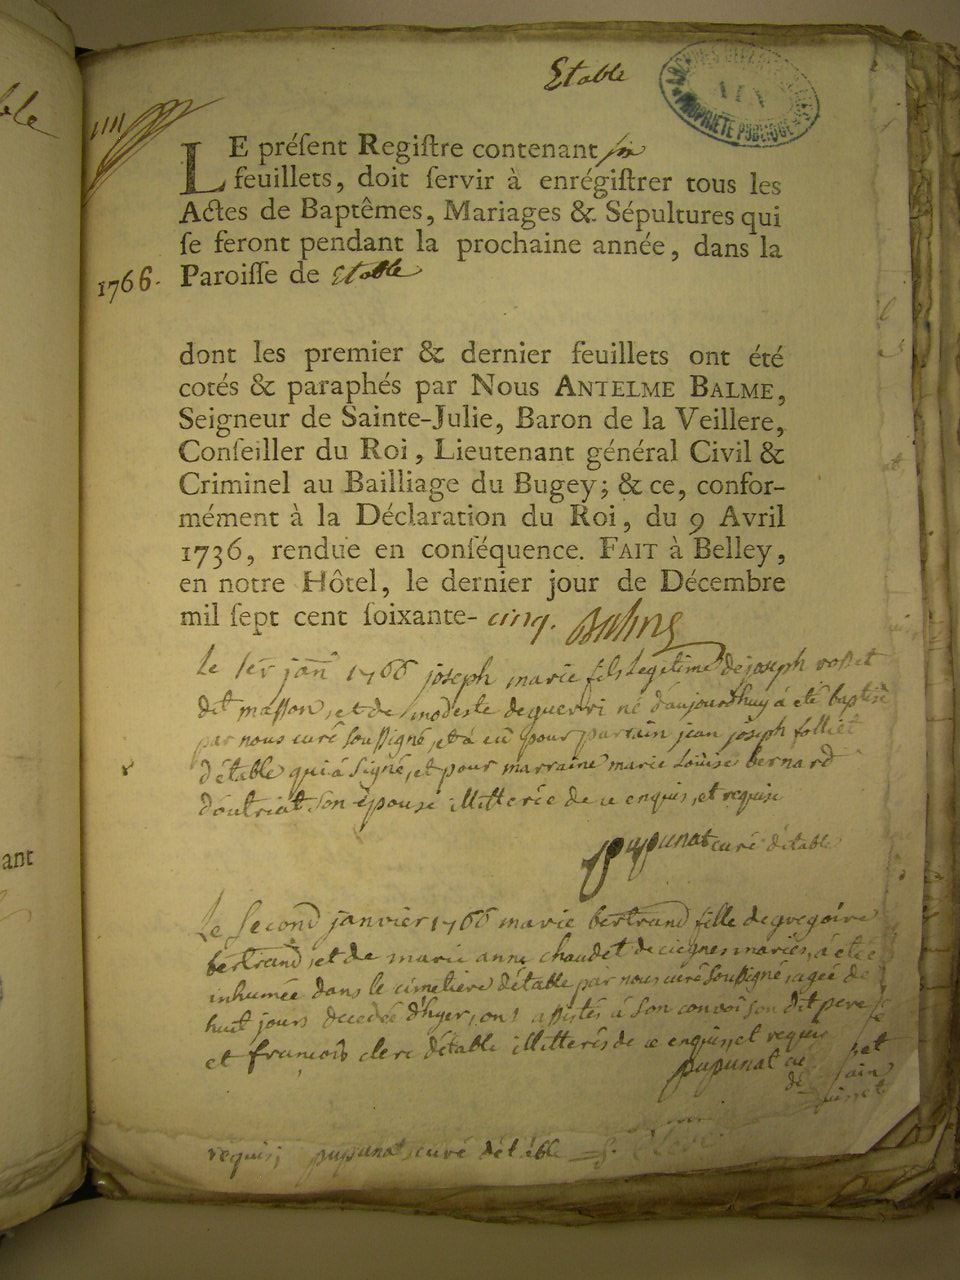 Etable
ARCHIVES DEPARTEMENTALES
AIN
PROPRIÉTÉ PUBLIQUE
LE préſent Regiſtre contenant six
feuillets, doit ſervir à enrégiſtrer tous les
Actes de Baptêmes, Mariages & Sépultures qui
ſe feront pendant la prochaine année, dans la
1766. Paroiſſe de Etable
dont les premier & dernier feuillets ont été
cotés & paraphés par Nous ANTELME BALME,
Seigneur de Sainte-Julie, Baron de la Veillere,
Conſeiller du Roi, Lieutenant général Civil &
Criminel au Bailliage du Bugey; & ce, confor-
mément à la Déclaration du Roi, du 9 Avril
1736, rendue en conſéquence. FAIT à Belley,
en notre Hôtel, le dernier jour de Décembre
mil ſept cent ſoixante- cinq. Balme
Le 1er janr 1766 joseph marie fils legitime de joseph rosset
dit masson, et de modeste deguerri né d'aujourdhuy á eté baptisé
par nous curé soussigné, et á eû pour parrain jean joseph folliet
d'étable qui á signé, et pour marraine marie louise bernard
d'outriat son épouse illitterée de ce enquis, et requise
pupunat curé d'étable
Le second janvier 1766 marie bertrand fille de gregoire
bertrand, et de marie anne chaudet de ciegnes mariés, á eteé
inhumée dans le cimetiere d'étable par nous curé soussigné, ageé de
huit jours decedeé d'hyer, ont assistés á son convoi son dit pere
et francois clerc d'étable illitterés de ce enquis, et requis
pupunat cu
requis; pupunat, curé d'étable
ant